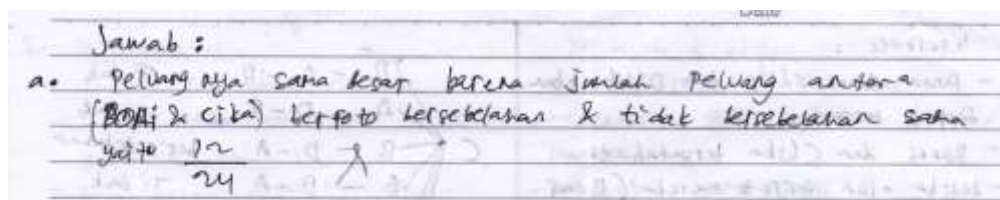 Date
Jawab :
a. Peluang nya sama besar karena jumlah peluang antara
(Boni & Cika) berfoto bersebelahan & tidak bersebelahan sama
yaitu 12
24